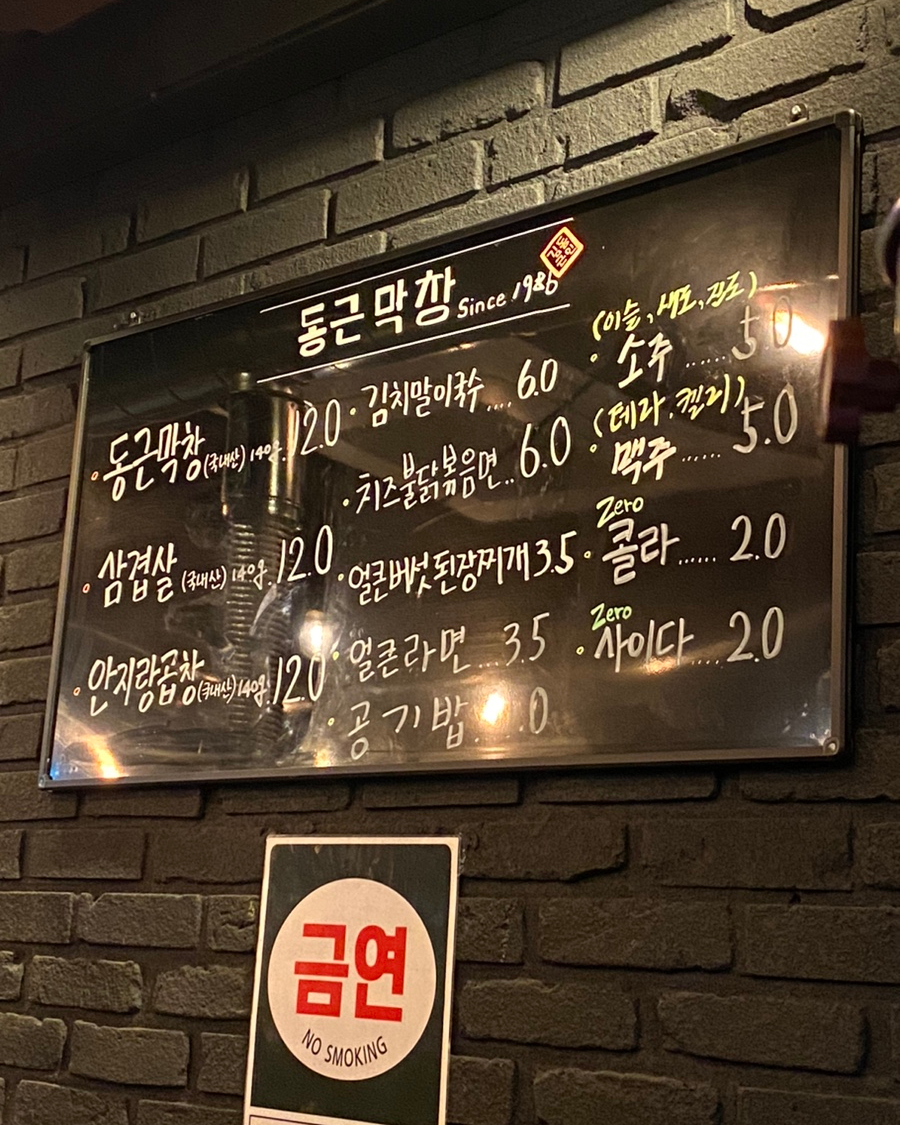 동근막창 Since 1986
동근막창(국내산) 140g. 12.0
삼겹살 (국내산) 140g. 12.0
안지랑곱창(국내산) 140g. 12.0
김치말이국수.... 6.0
치즈불닭볶음면.. 6.0
얼큰버섯된장찌개 3.5
얼큰라면... 3.5
공기밥
(이슬, 새로, 진로)
소주...... 5.0
(테라, 켈리)
맥주...... 5.0
Zero
콜라...... 2.0
Zero
사이다.... 2.0
금연
NO SMOKING